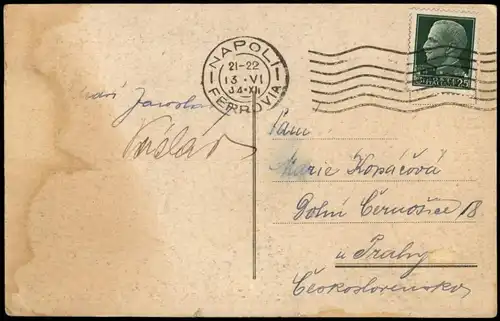 NAPOLI
21-22
13·VI
34·XII
FERROVIA
25
Jaroslav
Václav
Paní
Marie Kopáčová
Dolní Černošice 18
u Prahy
Československo